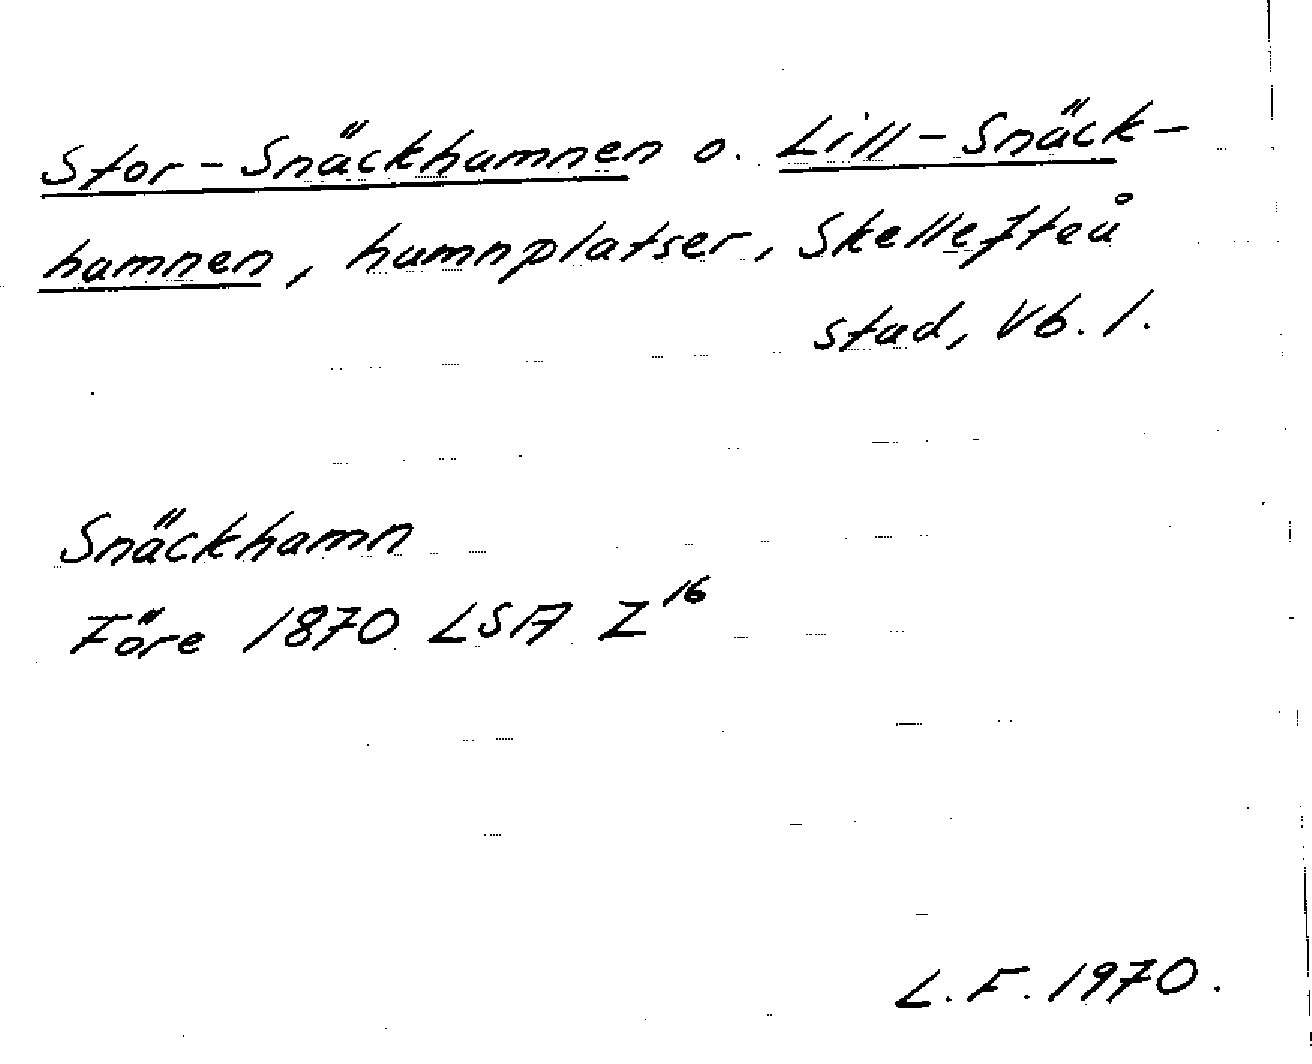 Stor-Snäckhamnen o. Lill-Snäck-
hamnen, hamnplatser, Skellefteå
stad, Vb. l.
Snäckhamn
Före 1870 LSA Z16
L. F. 1970.